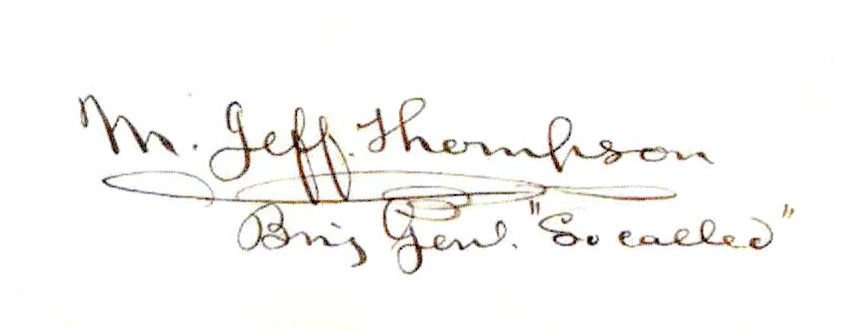 M. Jeff. Thompson
Brig Genl. "So called"